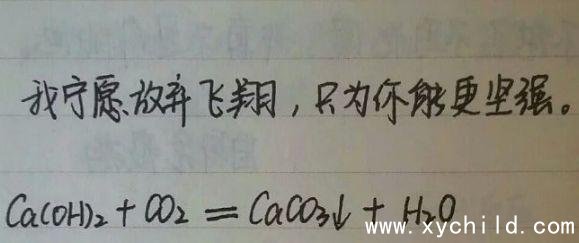 我宁愿放弃飞翔，只为你能更坚强。
Ca(OH)₂ + CO₂ = CaCO₃↓ + H₂O
www.xychild.com